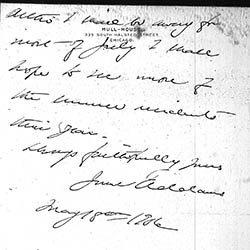 altho I shall be away for
HULL-HOUSE
335 SOUTH HALSTED STREET
CHICAGO
most of July I shall
hope to see more of
the summer residents
this year.
Always faithfully yours
Jane Addams
May 18" 1906